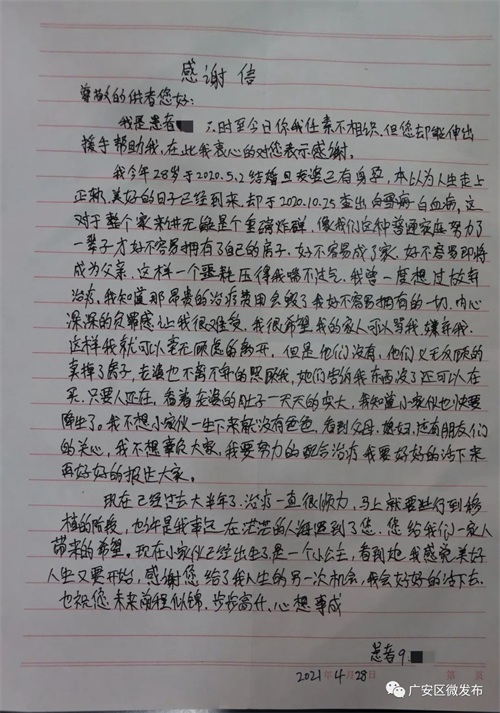 感谢信
尊敬的供者您好:
我是患者 时至今日你我任素不相识.但您却能伸出
援手帮助我,在此我衷心的对您表示感谢。
我今年28岁于2020.5.2结婚且老婆已有身孕,本以为人生走上
正轨.美好的日子已经到来,却于2020.10.25查出 白血病,这
对于整个家来讲无疑是个重磅炸弹.像我们这种普通家庭努力了
一辈子才好不容易拥有了自己的房子.好不容易成了家.好不容易即将
成为父亲.这样一个噩耗压得我喘不过气.我曾一度想过放弃
治疗,我知道那昂贵的治疗费用会毁了我好不容易拥有的一切.内心
深深的负罪感让我很难受.我很希望我的家人可以骂我.嫌弃我.
这样我就可以毫无顾虑的离开.但是他们没有,他们义无反顾的
卖掉了房子,老婆也不离不弃的照顾我,她们告诉我东西没了还可以在
买.只要人还在,看着老婆的肚子一天天的变大,我知道小家伙也快要
降生了。我不想小家伙一生下来就没有爸爸,看到父母.媳妇.还有朋友们
的关心,我不想辜负大家,我要努力的配合治疗我要好好的活下来
再好好的报达大家。
现在已经过去大半年了.治疗一直很顺力,马上就要进行到移
植的阶段,也许是我幸运在茫茫的人海遇到了您.您给我们一家人
带来的希望。现在小家伙已经出生了是一个小公主,看到她我感觉美好
人生又要开始,感谢您给了我人生的另一次机会,我会好好的活下去.
也祝您未来前程似锦.步步高升.心想事成
患者
2021年4月28日 第 页
广安区微发布